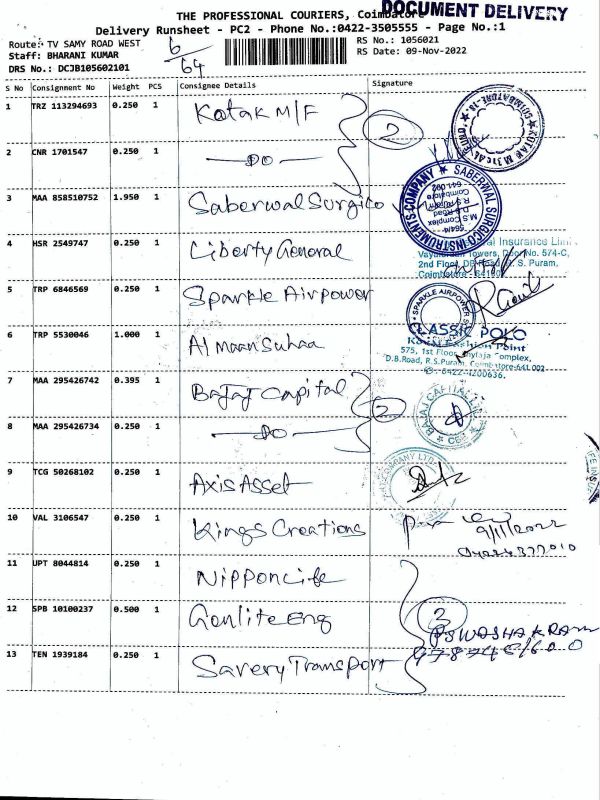 DOCUMENT DELIVERY
THE PROFESSIONAL COURIERS, Coimbatore
Delivery Runsheet - PC2 - Phone No.:0422-3505555 - Page No.:1
Route: TV SAMY ROAD WEST
Staff: BHARANI KUMAR
DRS No.: DCJB105602101
6/64
RS No.: 1056021
RS Date: 09-Nov-2022
S No Consignment No Weight PCS Consignee Details Signature
1 TRZ 113294693 0.250 1 Kotak M/F 2
2 CNR 1701547 0.250 1 —DO—
3 MAA 858510752 1.950 1 Saberwal Surgico
SABERWAL SURGICO INSTRUMENTS COMPANY
564/4
M.S Complex
D.B Road
R.S Puram
Coimbatore
641 002
4 HSR 2549747 0.250 1 Liberty General
Insurance Limi
Towers, Door No. 574-C,
2nd Floor, DB Road, R. S. Puram,
Coimbatore
5 TRP 6846569 0.250 1 Sparkle Airpower
SPARKLE AIRPOWER
6 TRP 5530046 1.000 1 Al maan Suhaa
CLASSIC POLO
Fashion Point
575, 1st Floor, Complex,
D.B.Road, R.S.Puram, Coimbatore-641 002
0422-4200636.
7 MAA 295426742 0.395 1 Bajaj Capital 2
BAJAJ CAPITAL LTD
CBE
8 MAA 295426734 0.250 1 —DO—
9 TCG 50268102 0.250 1 Axis Asset
COMPANY LTD
10 VAL 3106547 0.250 1 Kings Creations
9/11/2022
11 UPT 8044814 0.250 1 Nippon Life
12 SPB 10100237 0.500 1 Gonlite Eng 3
13 TEN 1939184 0.250 1 Savery Transport